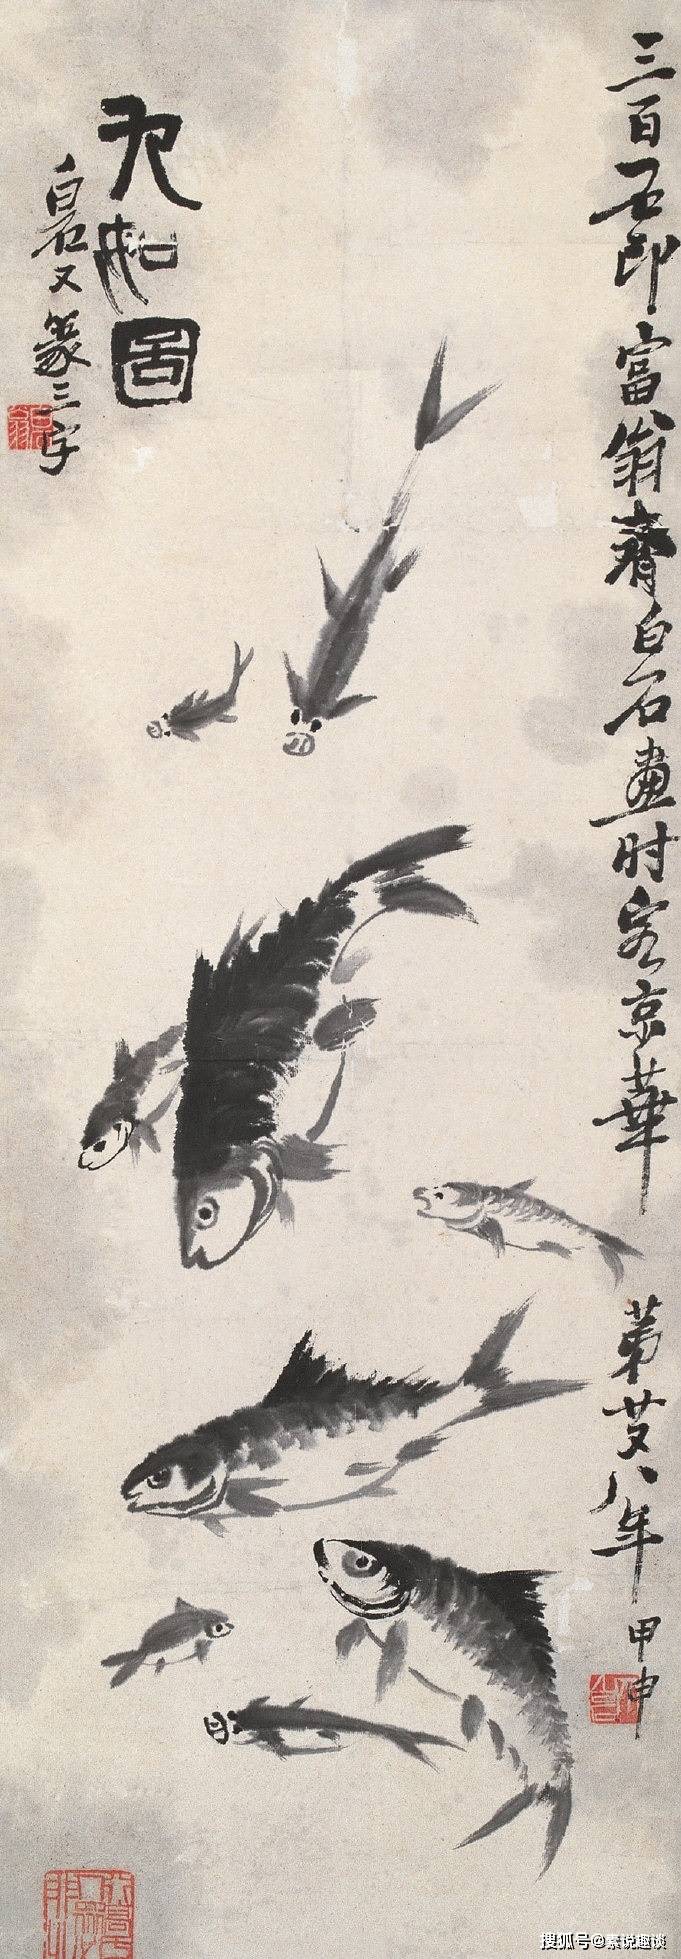 三百石印富翁齋白石畫时客京華
第廿又八年甲申
九如圖
白石又篆三字
搜狐号@素说趣谈